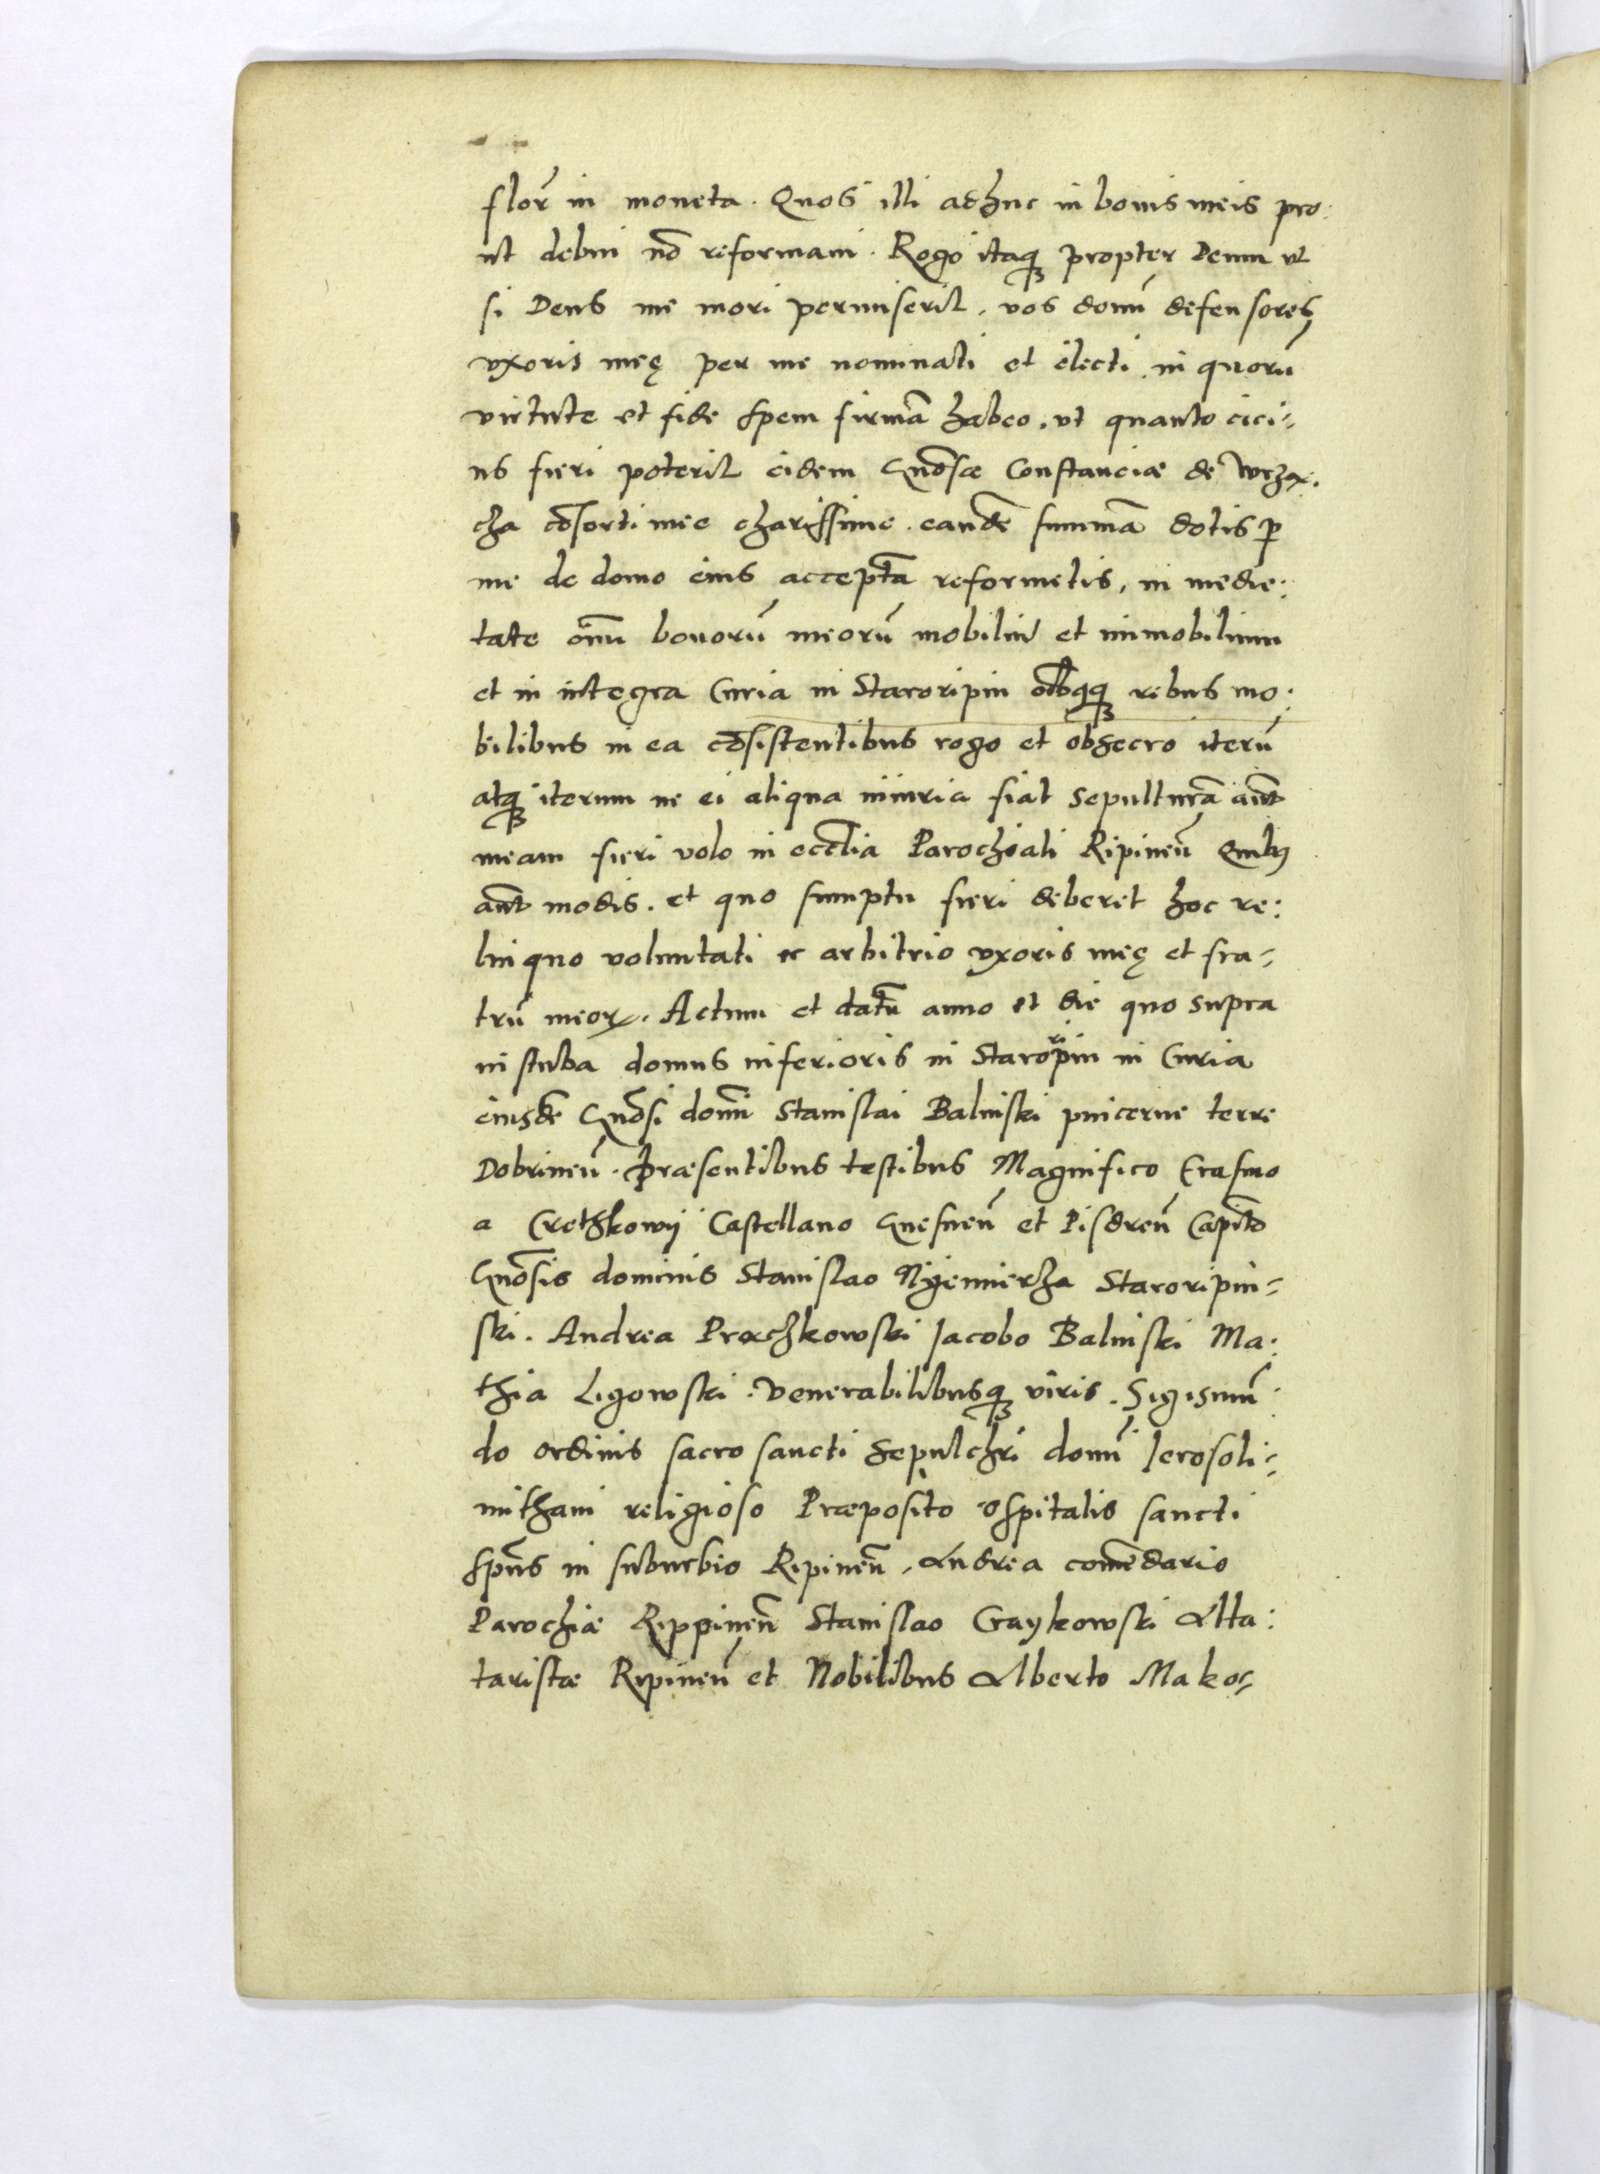 florẽ in moneta. Quos illi adhuc in bonis meis pro:
ut debui nõ reformavi. Rogo itaq; propter Deum ut
si Deus me mori permiserit, vos domĩ defensores
uxoris meę per me nominati et electi, in quorũ
virtute et fide spem firmã habeo, ut quanto cici-
us fieri poterit eidem Gnõsae Constanciae de
cza cõsorti mee charissime, eandẽ summã dotis p̱
me de domo eius acceptã reformetis, in medie:
tate om̃iũ bonorũ meorũ mobiliũ et immobilium
et in integra Curia in Staroripin oĩbq́q; rebus mo:
bilibus in ea cõsistentibus rogo et obsecro iterũ
atq; iterum ne ei aliqua iniuria fiat Sepulturã aũt
meam fieri volo in ecclĩa Parochiali Ripineñ Quibꝯ
aũt modis, et quo sumptu fieri deberet hoc re:
linquo voluntati et arbitrio uxoris meę et fra-
trũ meoꝝ. Actum et datũ anno et die quo supra
in stuba domus inferioris in Staroripin in Curia
eiusdẽ Gnõsi domĩ Stanislai Balinski pincerne terre
Dobrineñ. Praesentibus testibus Magnifico Erasmo
a Cretzkowij Castellano Gnesneñ et Pisdreñ Capitõ
Gnõsis dominis Stanislao Nyemierza Staroripin-
ski. Andrea Prochkowski Jacobo Balinski Ma:
thia Ligowski. Venerabilibusq; viris. Sigismũ
do ordinis sacro sancti Sepulchri domĩ Jerosoli-
mithani religioso Praeposito ospitalis sancti
spũs in suburbio Ripineñ, Andrea comẽdario
Parochiae Rippineñ Stanislao Gaykowski Alta:
taristae Ripineñ et Nobilibus Alberto Mako-